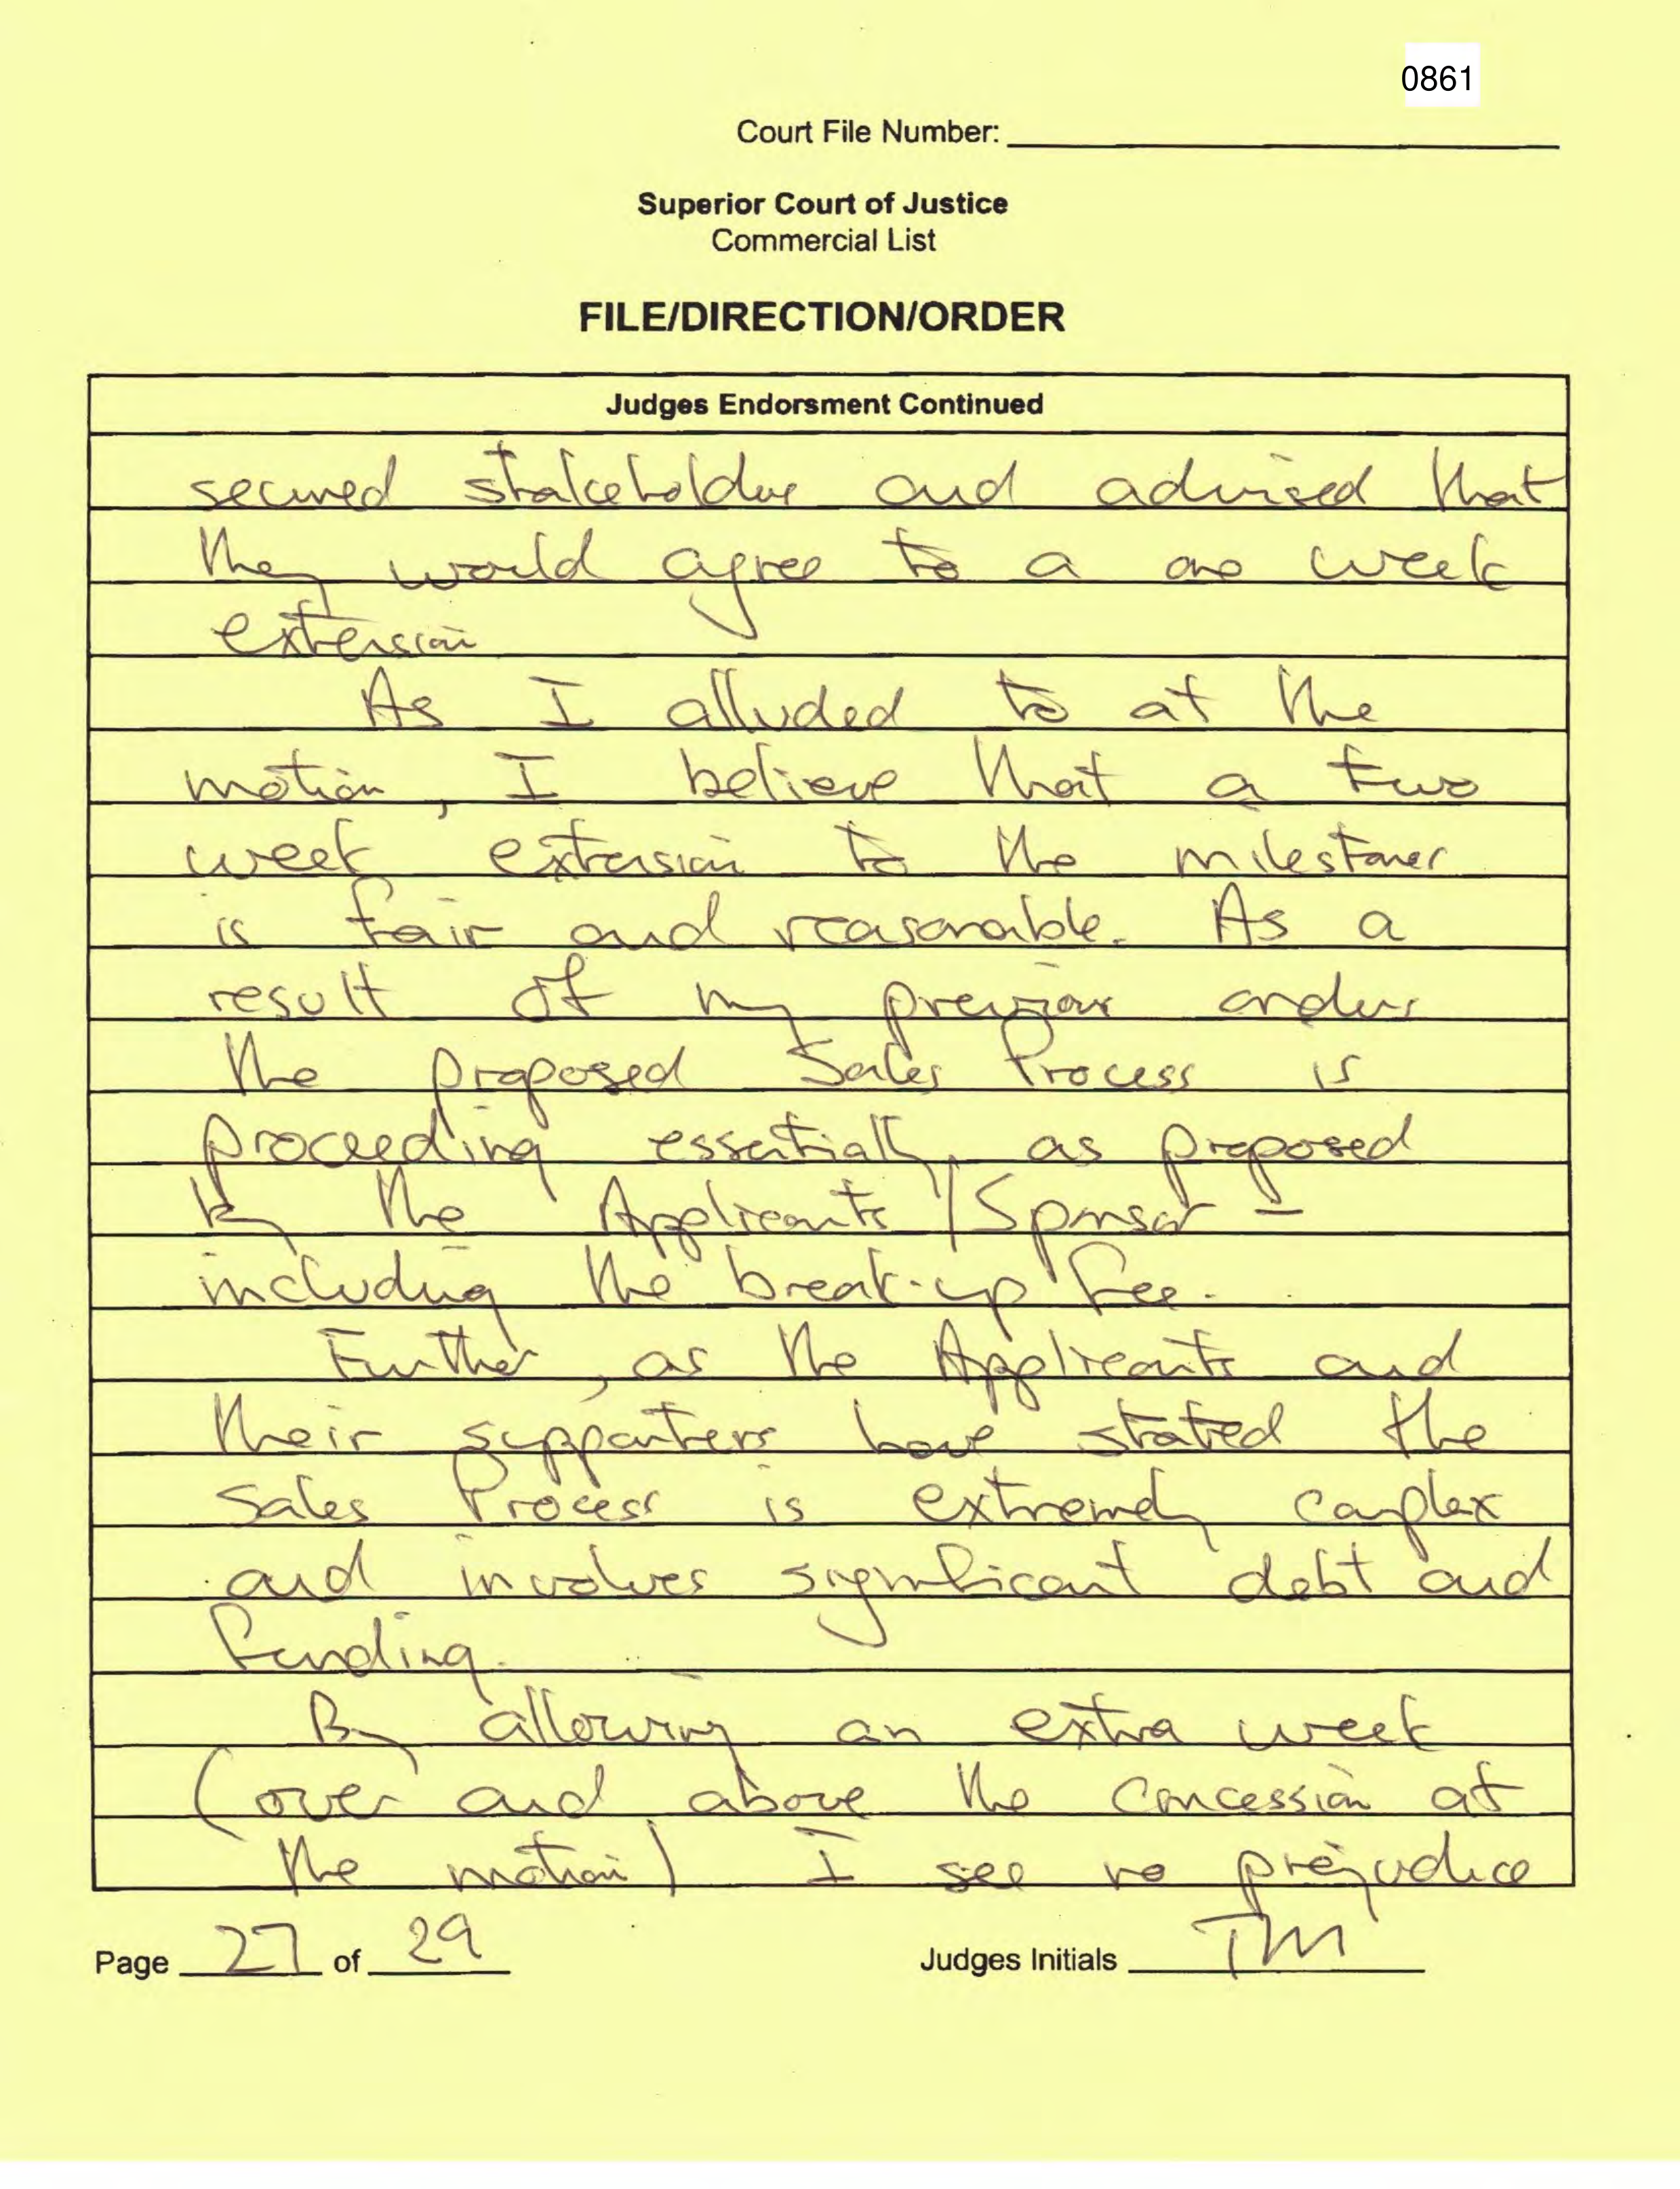 0861
Court File Number:
Superior Court of Justice
Commercial List
FILE/DIRECTION/ORDER
Judges Endorsment Continued
secured stakeholder and advised that
they would agree to a one week
extension
As I alluded to at the
motion, I believe that a two
week extension to the milestones
is fair and reasonable. As a
result of my previous orders
the proposed Sales Process is
proceeding essentially as proposed
by the Applicants/Sponsor -
including the break-up fee.
Further, as the Applicants and
their supporters have stated the
Sales Process is extremely complex
and involves significant debt and
funding.
By allowing an extra week
(over and above the concession at
the motion) I see no prejudice
Page 27 of 29 Judges Initials TM